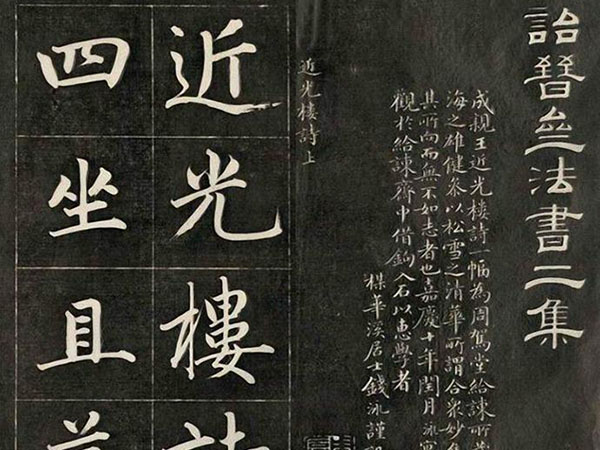 詒晉齋法書二集
成親王近光樓詩一幅為周駕堂給諫所藏
海之雄健參以松雪之清華所謂合眾妙
其所向而無不如志者也嘉慶十年閏月泳寓
觀於給諫齋中借鉤入石以惠學者
楳華溪居士錢泳謹
近光樓詩上
近光樓詩
四坐且